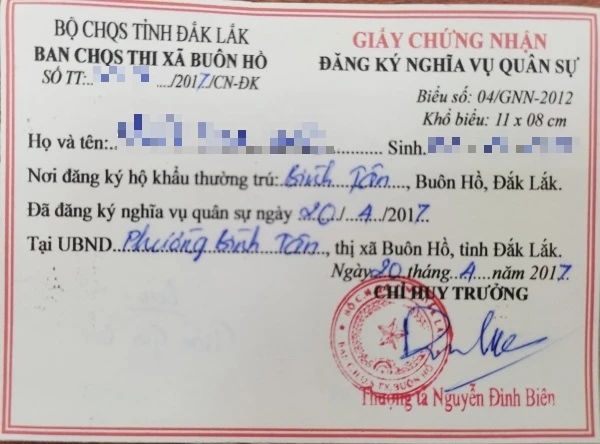 BỘ CHQS TỈNH ĐẮK LẮK
BAN CHQS THỊ XÃ BUÔN HỒ
SỐ TT:.. ..../2017/CN-ĐK
GIẤY CHỨNG NHẬN
ĐĂNG KÝ NGHĨA VỤ QUÂN SỰ
Biểu số: 04/GNN-2012
Khổ biểu: 11 x 08 cm
Họ và tên:.. Sinh.
Nơi đăng ký hộ khẩu thường trú: Bình Tân, Buôn Hồ, Đắk Lắk.
Đã đăng ký nghĩa vụ quân sự ngày 20/4/2017.
Tại UBND Phường Bình Tân, thị xã Buôn Hồ, tỉnh Đắk Lắk.
Ngày 20 tháng 4 năm 2017
CHỈ HUY TRƯỞNG
BAN CHQS TX. BUÔN HỒ
Thượng tá Nguyễn Đình Biên